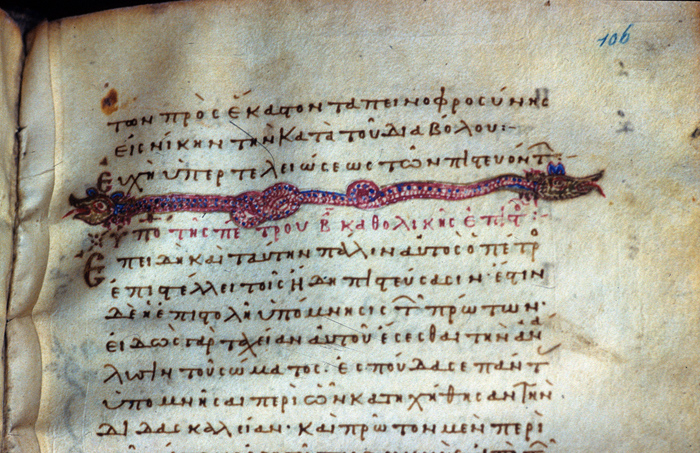 106
των πρὸς ἕκαστον ταπεινοφροσύνης
εἰς νίκην τὴν κατὰ τοῦ διαβόλου:-
εὐχὴ ὑπὲρ τελειώσεως τῶν πιστευόντ:-
ὑπό της πέτρου β καθολικῆς ἐπιστ:-
Ἐπειδὴ καὶ ταύτην πάλιν αὐτὸς ὁ πέτρ
ἐπιστέλλει τοῖς ἤδη πιστεύσασιν· ἔστιν
δὲ ἡ ἐπιστολὴ ὑπόμνησις τ πρώτων·
εἰδὼς γὰρ ταχεῖαν αὐτοῦ ἔσεσθαι τὴν ἀνά
λυσιν τοῦ σώματος· ἐσπούδασε πάντ
ὑπομνῆσαι περὶ ὧν κατηχήθησαν τὴν
διδασκαλείαν· καὶ πρῶτον μὲν περὶ